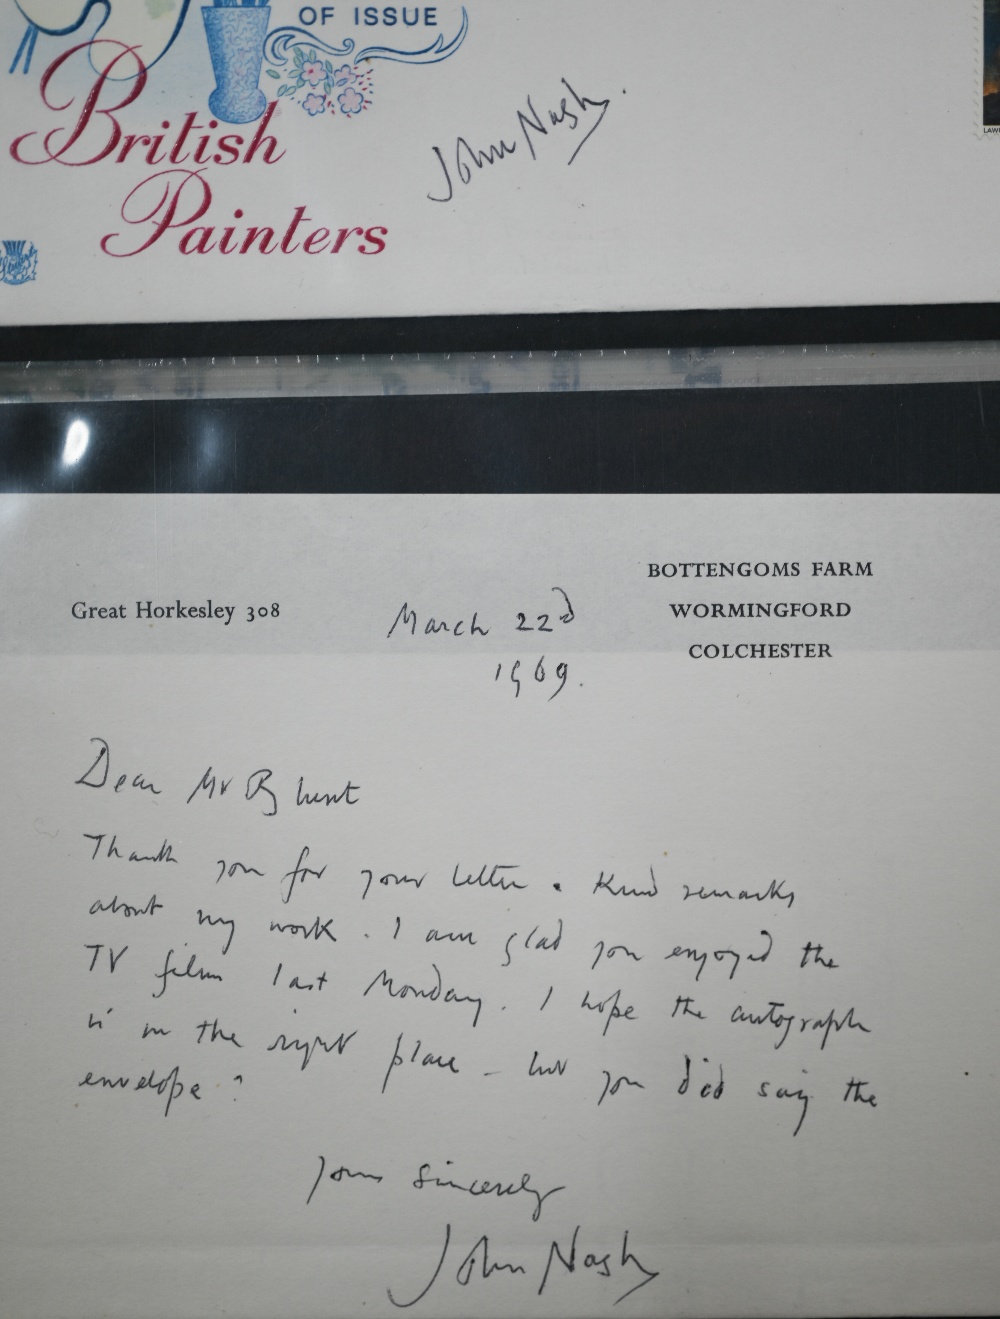 OF ISSUE
British
Painters
John Nash.
LAW
BOTTENGOMS FARM
Great Horkesley 308
WORMINGFORD
COLCHESTER
March 22d
1969.
Dear Mr Blunt
Thank you for your letter. Kind remarks
about my work. I am glad you enjoyed the
TV film last Monday. I hope the autograph
is in the right place - but you did say the
envelope?
Yours sincerely
John Nash